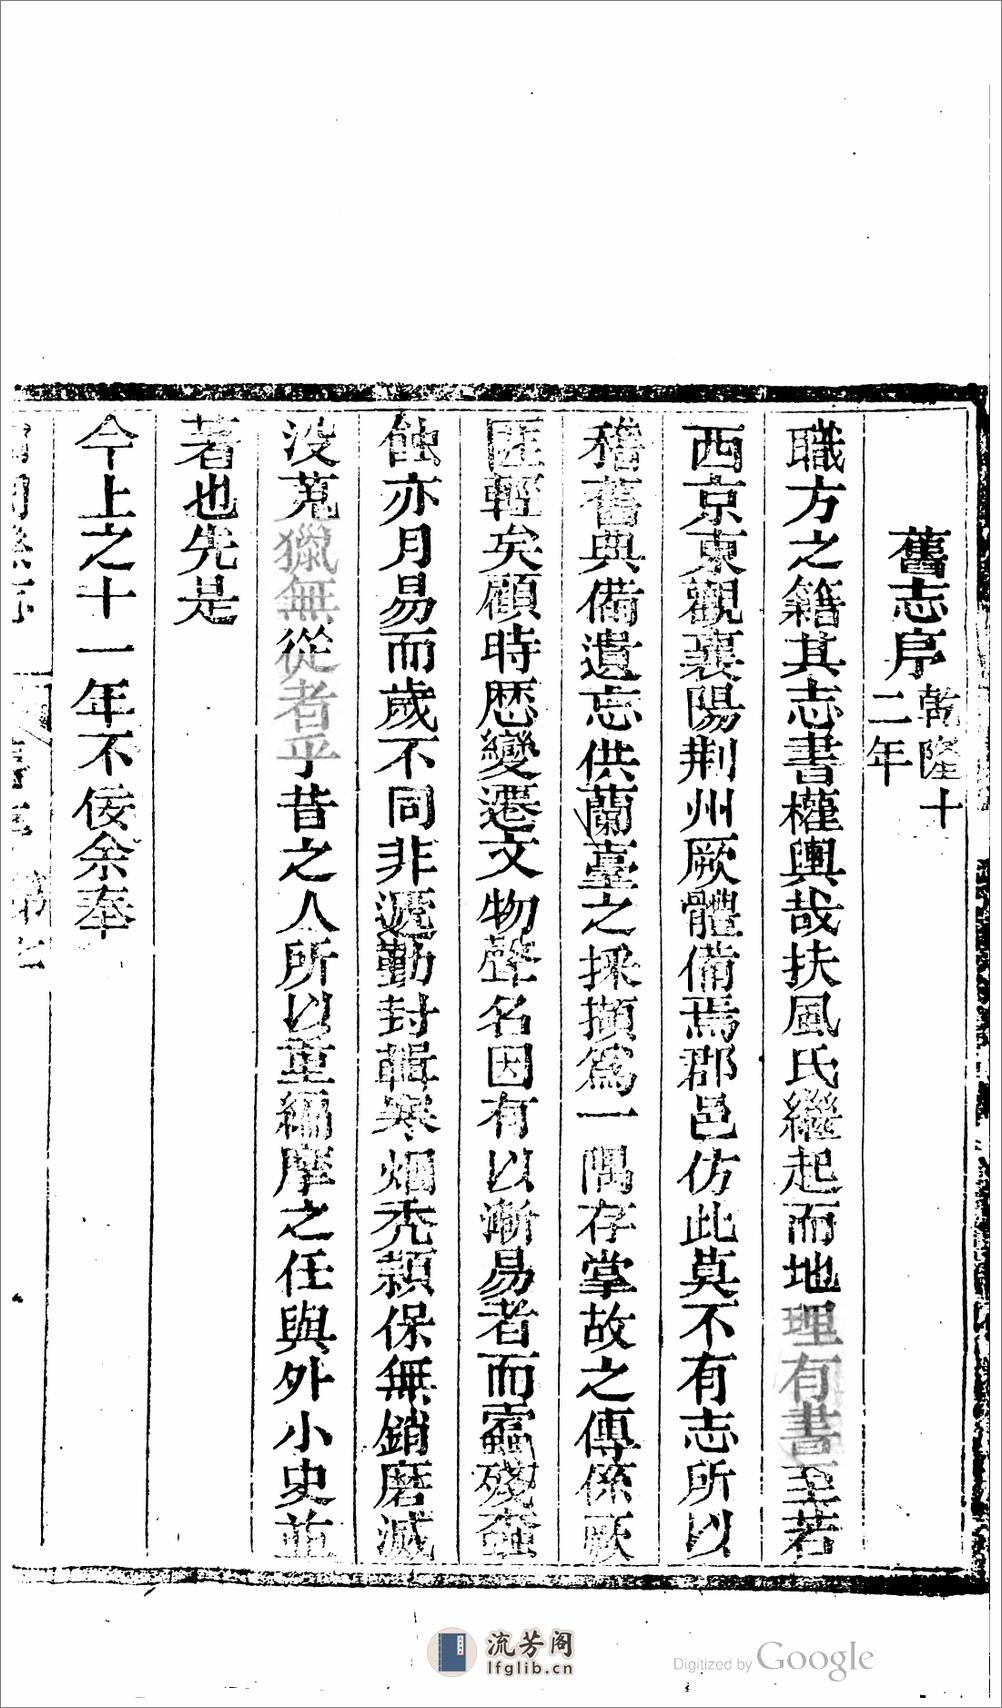 舊志序乾隆十二年
職方之籍其志書權輿哉扶風氏繼起而地理有書至若
西京東觀襄陽荆州厥體備焉郡邑仿此莫不有志所以
稽舊典備遺忘供蘭臺之採擷爲一隅存掌故之傳係
匪輕矣顧時歴變遷文物聲名因有以漸易者而殘
蝕亦月易而歲不同非遞勤封輯寒烟秃穎保無銷磨滅
没蒐獵無從者乎昔之人所以重編摩之任與外小史並
著也先是
今上之十一年不佞余奉
流芳阁
lfglib.cn
Digitized by Google